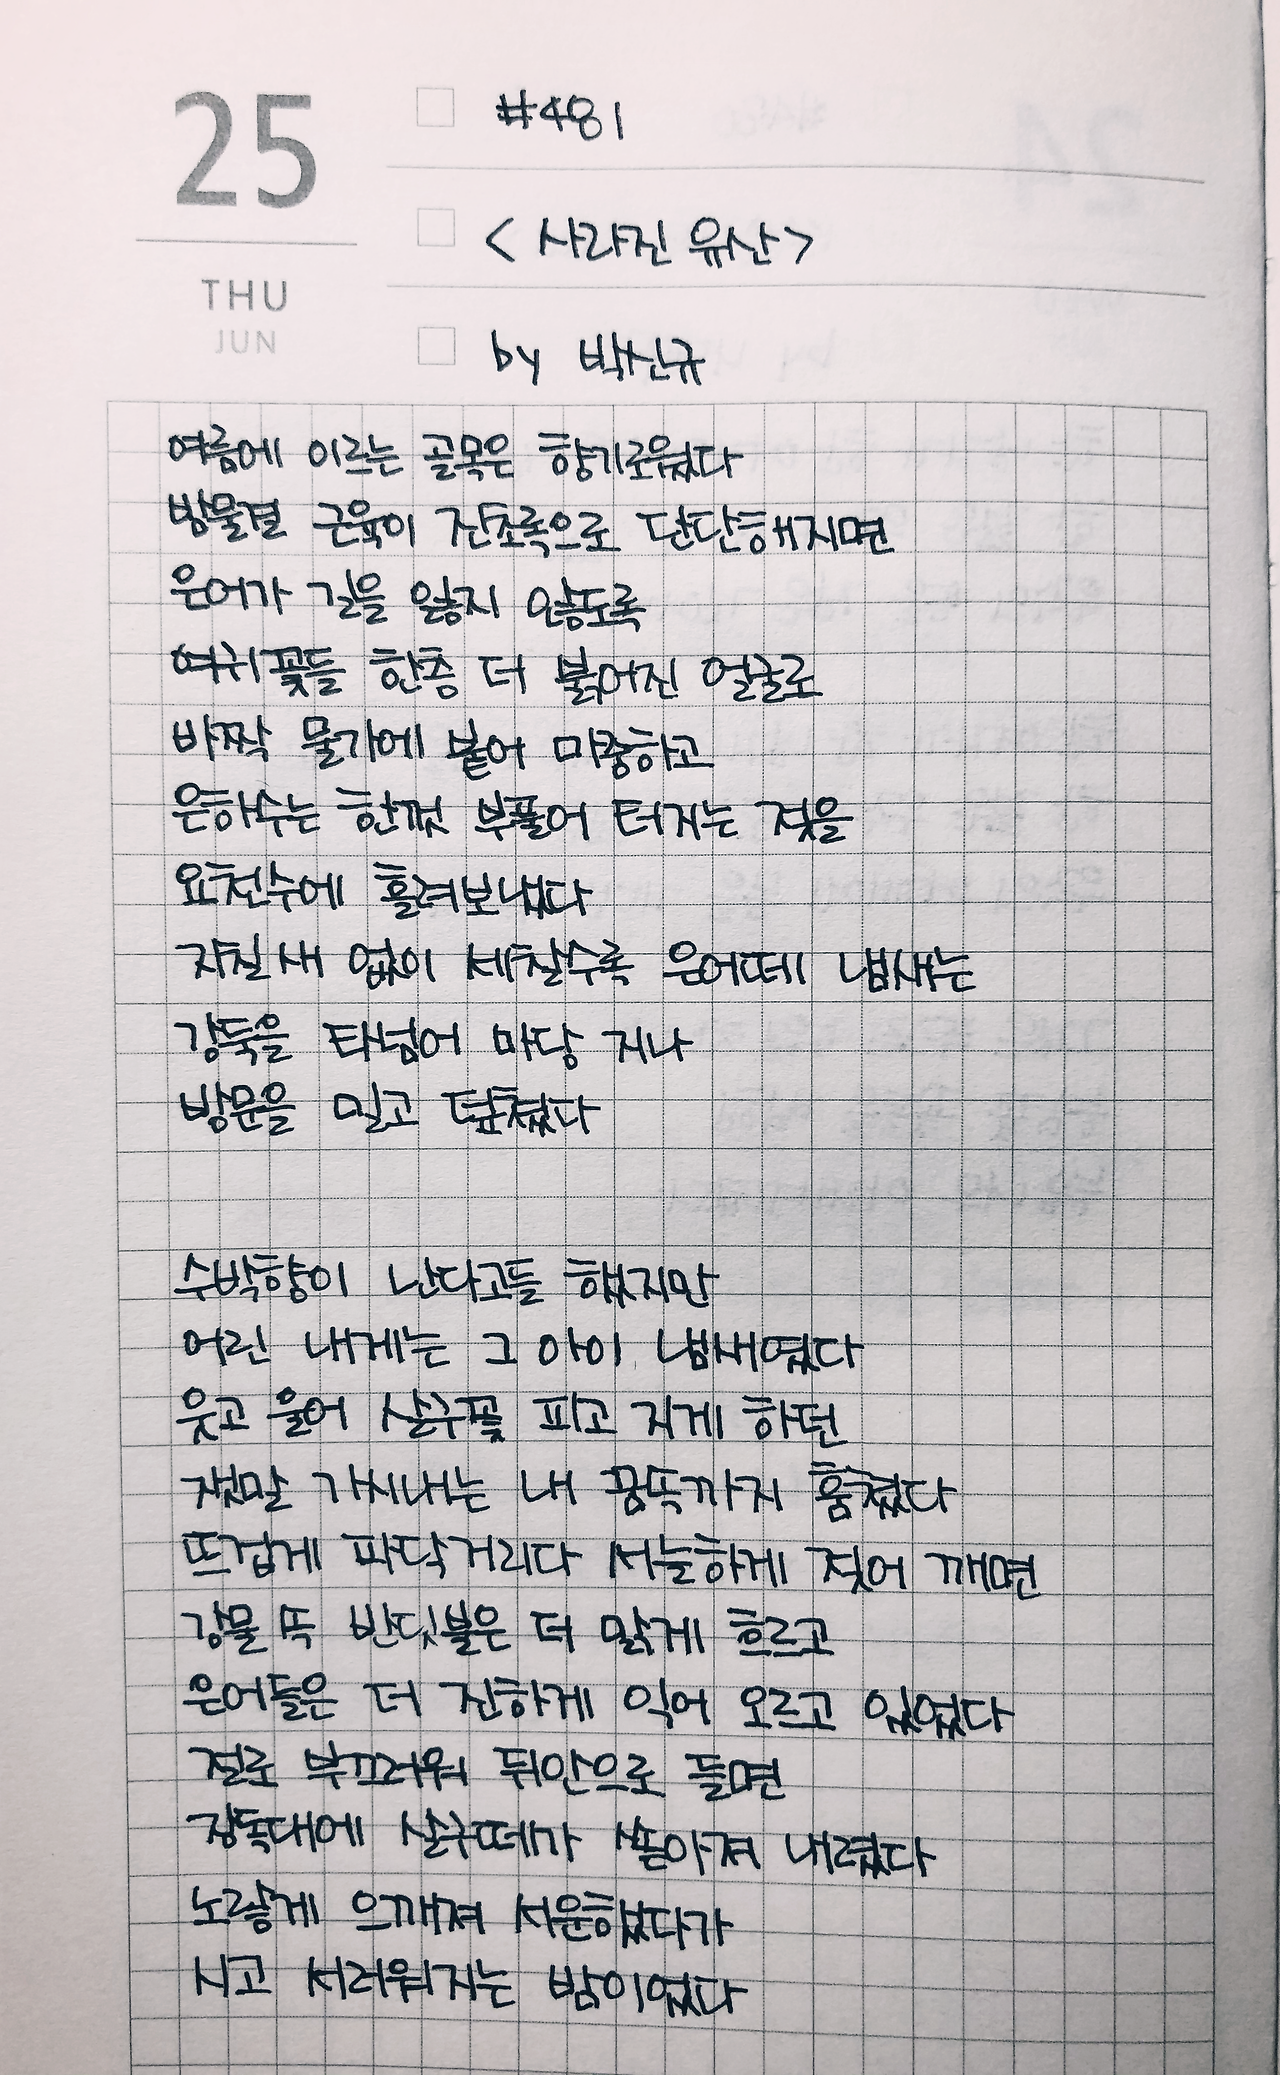 25
THU
JUN
#481
<사라진 유산>
by 박신규
여름에 이르는 골목은 향기로웠다
강물결 근육이 진초록으로 단단해지면
은어가 길을 잃지 않도록
여귀꽃들 한층 더 붉어진 얼굴로
바짝 물가에 붙어 마중하고
은하수는 한껏 부풀어 터지는 젖을
요천수에 흘려보냈다
지칠 새 없이 세찰수록 은어떼 냄새는
강둑을 타넘어 마당 지나
방문을 밀고 덮쳤다
수박향이 난다고들 했지만
어린 내게는 그 아이 냄새였다
웃고 울어 살구꽃 피고 지게 하던
잿말 가시내는 내 꿈뚝까지 훔쳤다
뜨겁게 파닥거리다 서늘하게 젖어 깨면
강물 쪽 반딧불은 더 맑게 흐르고
은어들은 더 진하게 익어 오르고 있었다
절로 부끄러워 뒤안으로 들면
장독대에 살구떼가 쏟아져 내렸다
노랗게 으깨져 서운했다가
시고 서러워지는 밤이었다